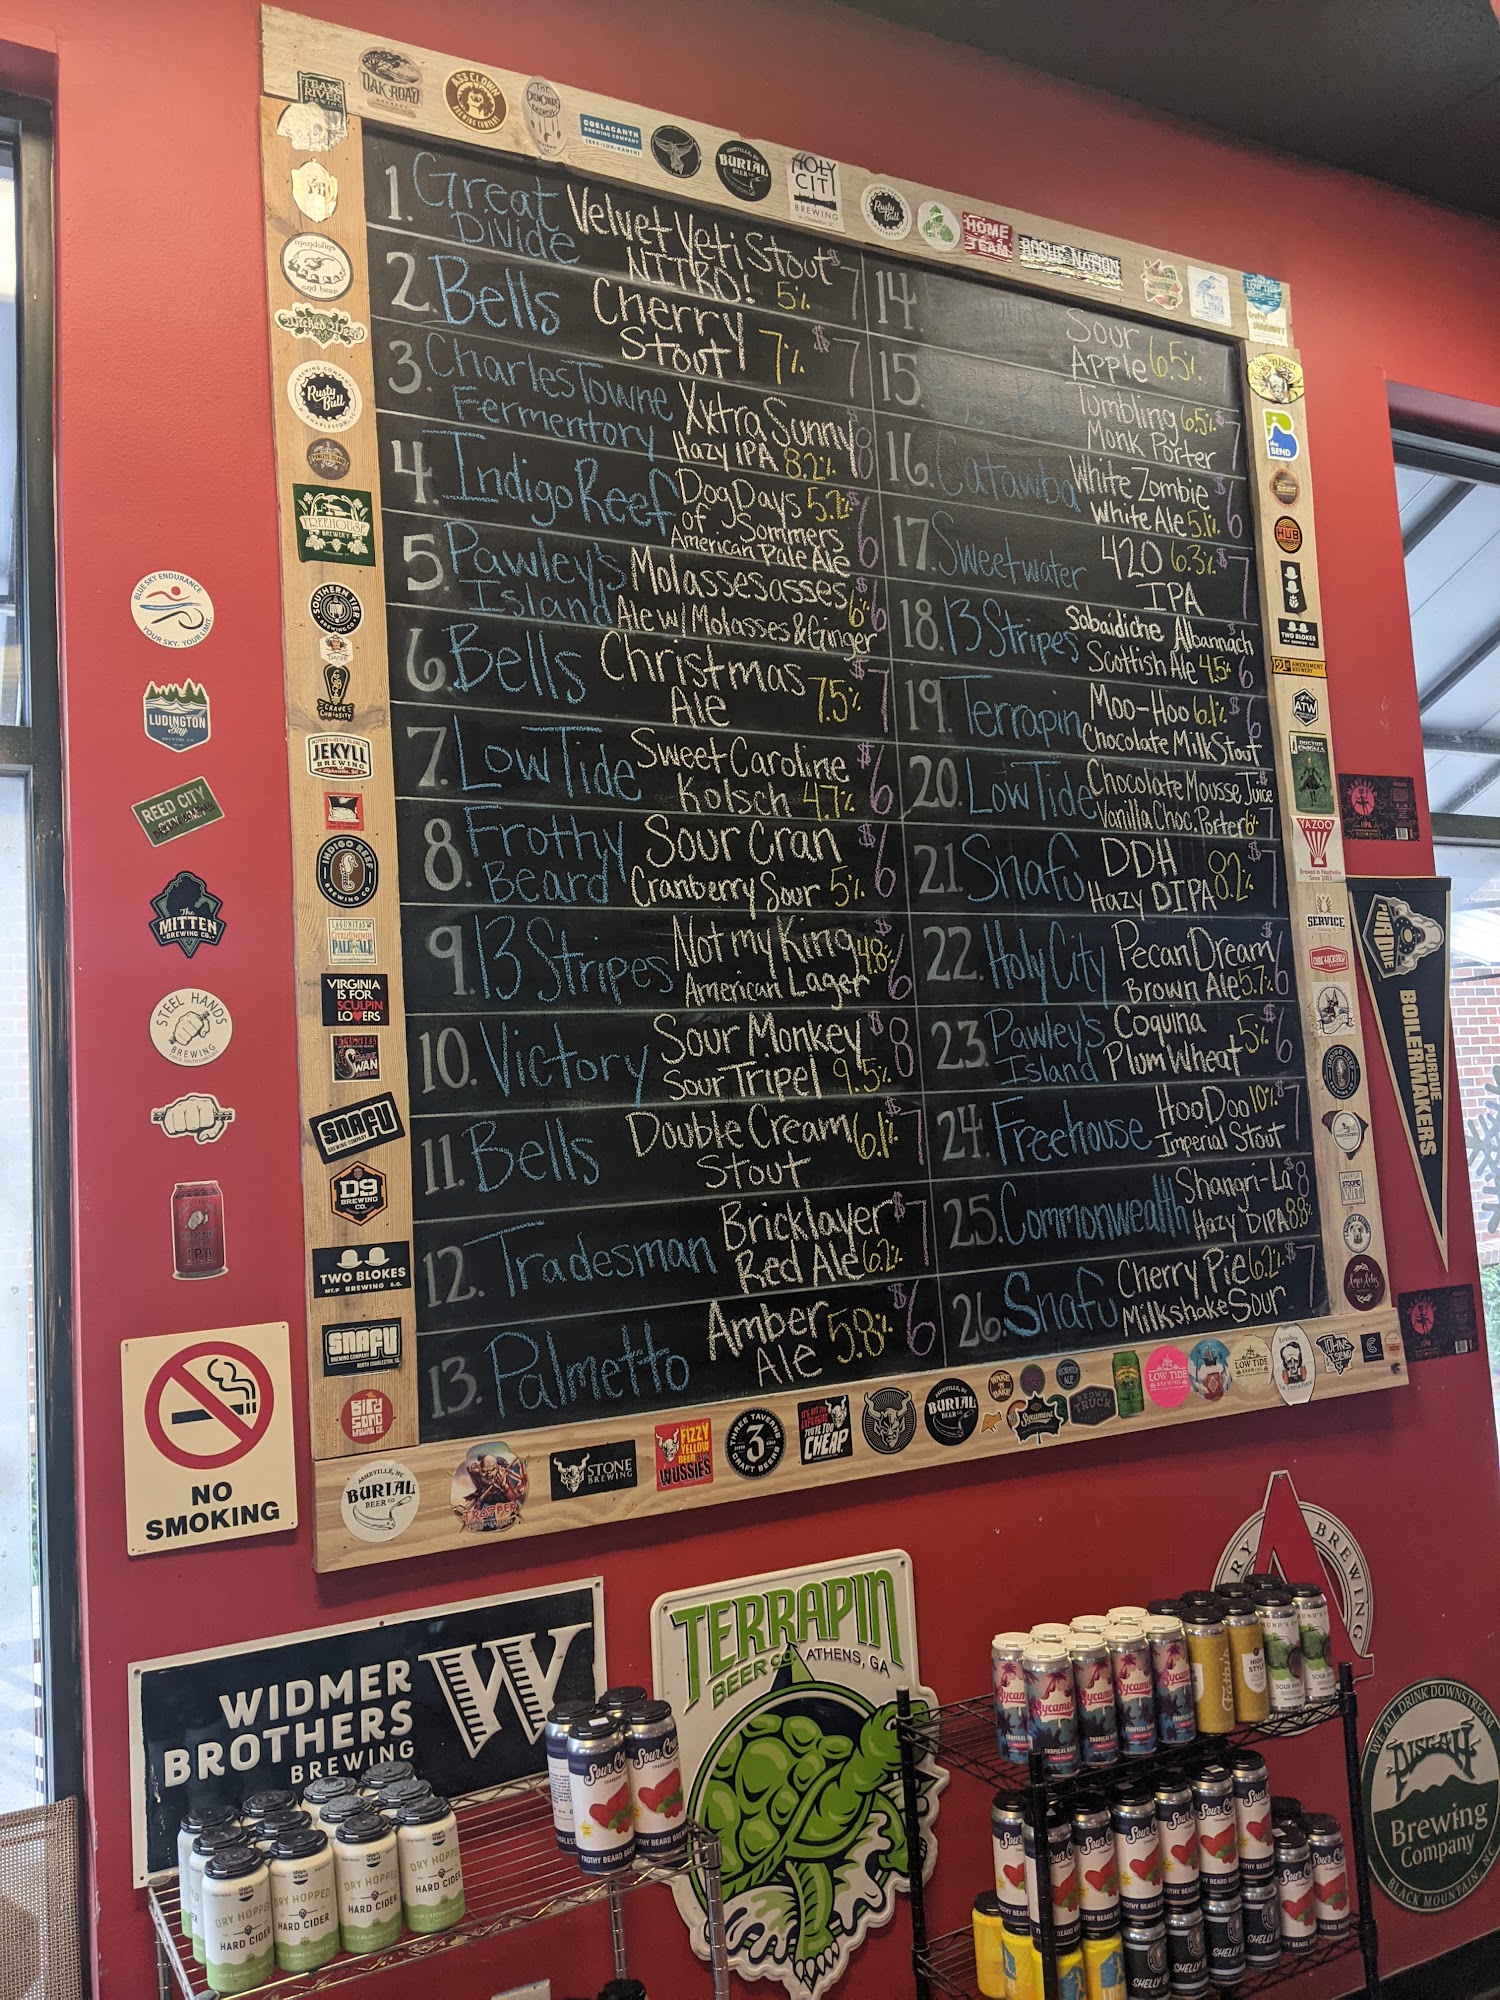 1. Great Divide Velvet Yeti Stout NITRO! 5% $7
2. Bells Cherry Stout 7% $7
3. CharlesTowne Fermentory Xxtra Sunny Hazy IPA 8.2% 8
4. Indigo Reef Dog Days of Sommers American Pale Ale 5.2% $6
5. Pawley's Island Molassesasses Ale w/ Molasses & Ginger 6% $6
6. Bells Christmas Ale 7.5% $7
7. Low Tide Sweet Caroline Kolsch 4.7% $6
8. Frothy Beard Sour Cran Cranberry Sour 5% $6
9. 13 Stripes Not my King American Lager 4.8% $6
10. Victory Sour Monkey Sour Tripel 9.5% $8
11. Bells Double Cream Stout 6.1% $7
12. Tradesman Bricklayer Red Ale 6.2% $7
13. Palmetto Amber Ale 5.8% $6
14. Sour Apple 6.5%
15. Tumbling Monk Porter 6.5% $7
16. Catawba White Zombie White Ale 5.1% $6
17. Sweetwater 420 IPA 6.3% $7
18. 13 Stripes Sabaidiche Albannach Scottish Ale 4.5% $6
19. Terrapin Moo-Hoo Chocolate Milk Stout 6.1% $6
20. Low Tide Chocolate Mousse Juice Vanilla Choc. Porter 6% $7
21. Snafu DDH Hazy DIPA 8.2% $7
22. Holy City Pecan Dream Brown Ale 5.7% $6
23. Pawley's Island Coquina Plum Wheat 5% $6
24. Freehouse HooDoo Imperial Stout 10% $7
25. Commonwealth Shangri-La Hazy DIPA 8.8% $8
26. Snafu Cherry Pie Milkshake Sour 6.2% $7
OAK ROAD
ASS CLOWN
BREWING COMPANY
COELACANTH
BREWING COMPANY
BURIAL
BEER CO.
HOLY
CITY
BREWING
Rusty
Bull
HOME
TEAM
ROGUE NATION
mandolins
and beer
Rusty
Bull
FREEHOUSE
BREWERY
SOUTHERN TIER
BREWING CO
CRAVE
CURIOSITY
JEKYLL
BREWING
INDIGO REEF
BREWING CO
LAGUNITAS
PALE ALE
VIRGINIA
IS FOR
SCULPIN
LOVERS
SNAFU
BREWING COMPANY
D9
BREWING
CO.
TWO BLOKES
BREWING
SNAFU
BREWING COMPANY
NORTH CHARLESTON, SC
BIRD
SONG
BREWING CO.
the
BEND
HUB
TWO BLOKES
21st AMENDMENT
BREWERY
ATW
YAZOO
Brewed in Nashville
Since 2003
SERVICE
ASHEVILLE, NC
BURIAL
BEER CO.
TROOPER
STONE
BREWING
FIZZY
YELLOW
BEER
WUSSIES
THREE TAVERNS
3
CRAFT BEERS
IT'S NOT TOO
EXPENSIVE
YOU'RE TOO
CHEAP
BURIAL
BEER CO
WAKE
N
BAKE
Sycamore
BROWN
TRUCK
LOW TIDE
BREWING
LOW TIDE
BREWING
BLUE SKY ENDURANCE
YOUR SKY. YOUR LIMIT.
LUDINGTON
Bay
BREWING CO.
REED CITY
BREWING
The
MITTEN
BREWING CO.
STEEL HANDS
BREWING
IPA
NO
SMOKING
PURDUE
PURDUE
BOILERMAKERS
WIDMER
BROTHERS
BREWING
W
TERRAPIN
BEER CO. ATHENS, GA
BREWING
WE ALL DRINK DOWNSTREAM
PISGAH
Brewing
Company
BLACK MOUNTAIN, NC
DRY HOPPED
HARD CIDER
Sour Cran
FROTHY BEARD
Sycamore
TROPICAL
HIGH
STYLE
SOUR
SHELLY